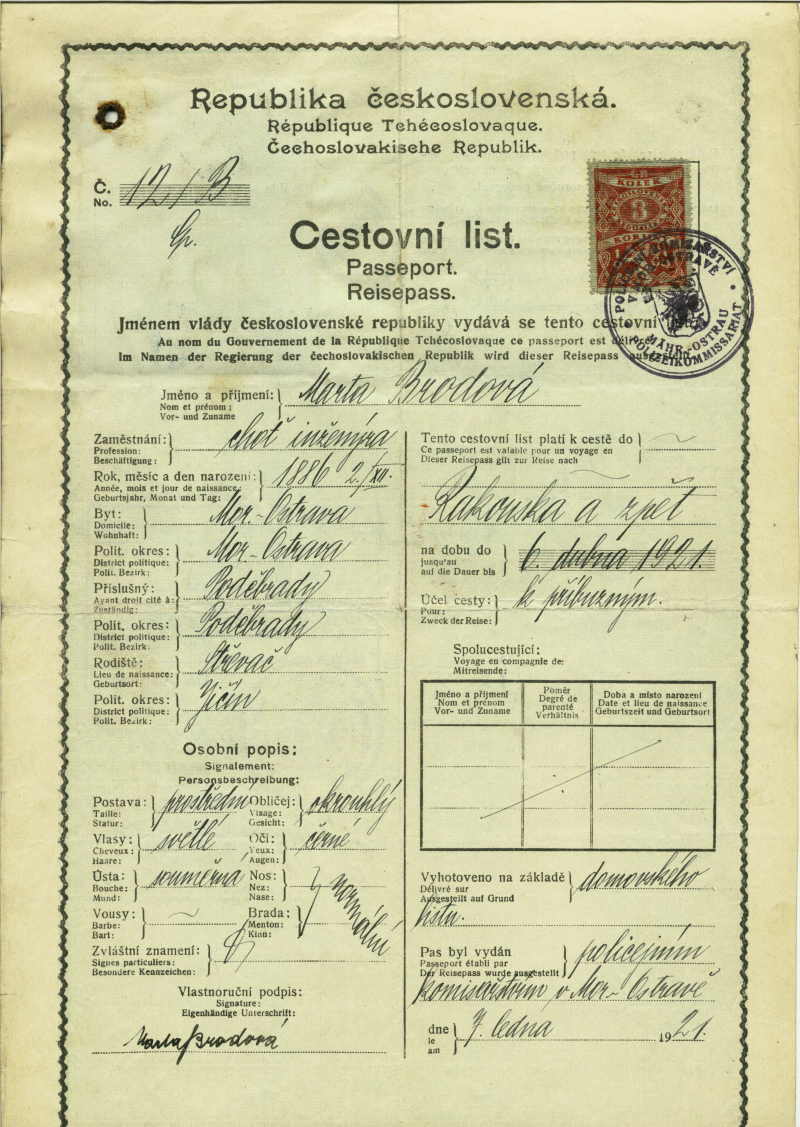 Republika československá.
République Tchécoslovaque.
Čechoslovakische Republik.
Č. 12/B
No.
Cestovní list.
Passeport.
Reisepass.
KOLEK
3
POLICEJNÍ KOMISAŘSTVÍ
V MOR. OSTRAVĚ
MÄHR.-OSTRAU
POLIZEIKOMMISSARIAT
Jménem vlády československé republiky vydává se tento cestovní
Au nom du Gouvernement de la République Tchécoslovaque ce passeport est délivré
Im Namen der Regierung der čechoslovakischen Republik wird dieser Reisepass ausgestellt
Jméno a příjmení: Marta Brodová
Nom et prénom:
Vor- und Zuname
Zaměstnání: choť inženýra
Profession:
Beschäftigung:
Rok, měsíc a den narození: 1886 2./XII.
Année, mois et jour de naissance:
Geburtsjahr, Monat und Tag:
Byt: Mor.-Ostrava
Domicile:
Wohnhaft:
Polit. okres: Mor-Ostrava
District politique:
Polit. Bezirk:
Příslušný: Poděbrady
Ayant droit cité à:
Zuständig:
Polit. okres: Poděbrady
District politique:
Polit. Bezirk:
Rodiště: Střevač
Lieu de naissance:
Geburtsort:
Polit. okres: Jičín
District politique:
Polit. Bezirk:
Osobní popis:
Signalement:
Personsbeschreibung:
Postava: prostřední Obličej: okrouhlý
Taille: Visage:
Statur: Gesicht:
Vlasy: světlé Oči: černé
Cheveux: Yeux:
Haare: Augen:
Ústa: souměrná Nos: normální
Bouche: Nez:
Mund: Nase:
Vousy: Brada:
Barbe: Menton:
Bart: Kinn:
Zvláštní znamení:
Signes particuliers:
Besondere Kennzeichen:
Vlastnoruční podpis:
Signature:
Eigenhändige Unterschrift:
Marta Brodová
Tento cestovní list platí k cestě do
Ce passeport est valable pour un voyage en
Dieser Reisepass gilt zur Reise nach
Rakouska a zpět
na dobu do 6. dubna 1921.
jusqu'au
auf die Dauer bis
Účel cesty: k příbuzným.
Pour:
Zweck der Reise:
Spolucestující:
Voyage en compagnie de:
Mitreisende:
Jméno a příjmení Poměr Doba a místo narození
Nom et prénom Degré de parenté Date et lieu de naissance
Vor- und Zuname Verhältnis Geburtszeit und Geburtsort
Vyhotoveno na základě domovského
Délivré sur
Ausgestellt auf Grund
listu.
Pas byl vydán policejním
Passeport établi par
Der Reisepass wurde ausgestellt
komisařstvím v Mor.-Ostravě
dne 7. ledna 1921.
le
am